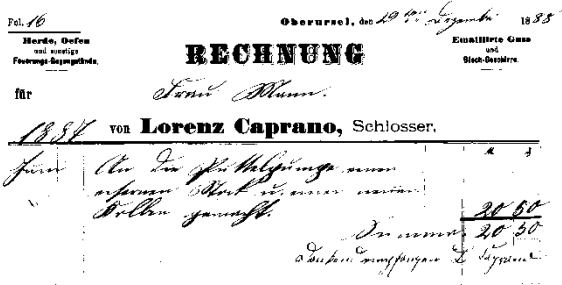 Fol. 16
Oberursel, den 29ten Dezember 1888
Herde, Oefen
und sonstige
Feuerungs-Gegenstände.
RECHNUNG
Emaillirte Guss
und
Blech-Geschirre.
für Frau Mann.
1887 von Lorenz Caprano, Schlosser.
M ₰
Juni An die Puttelpumpe einen
eisernen Stock u. einen neuen
Kolben gemacht. 20 50
Summe 20 50
Dankend empfangen L Caprano